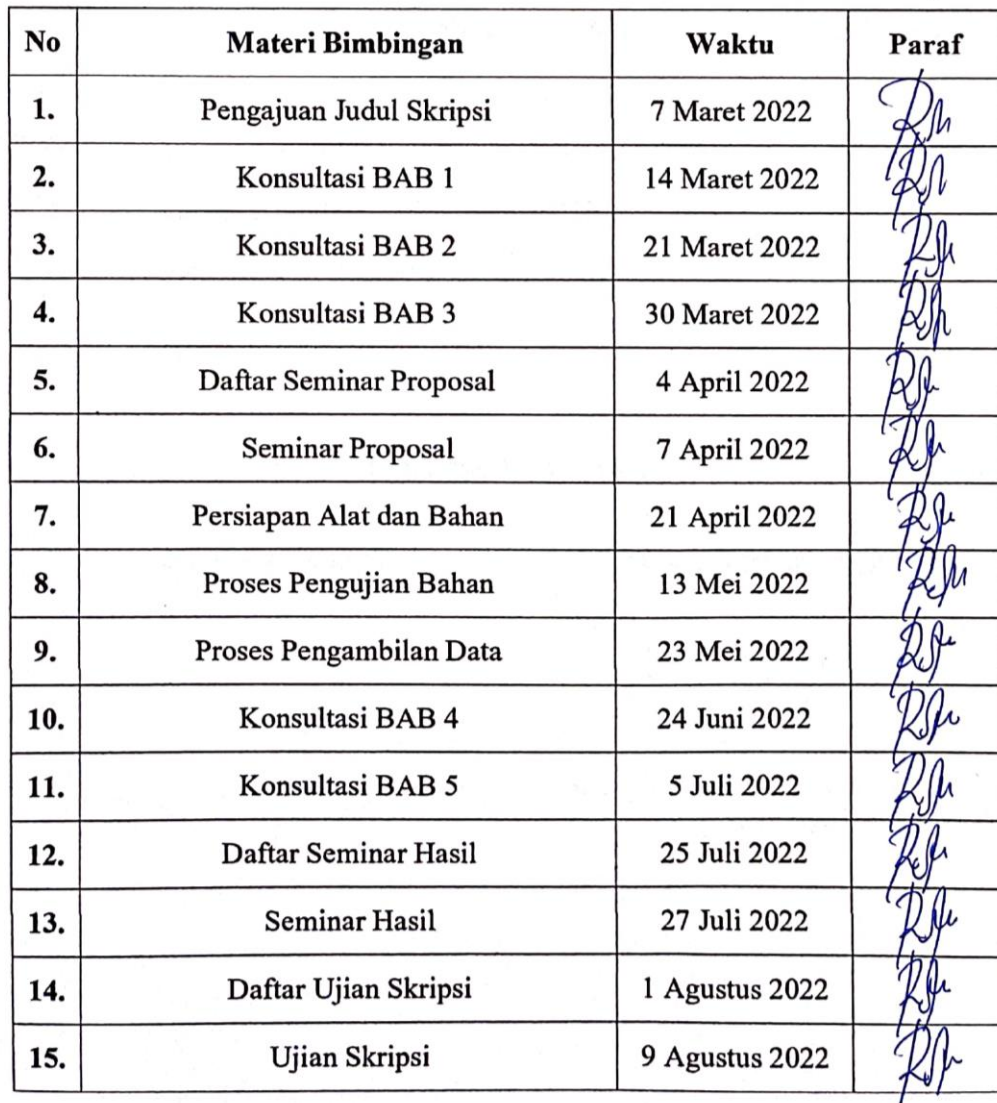 No Materi Bimbingan Waktu Paraf
1. Pengajuan Judul Skripsi 7 Maret 2022
2. Konsultasi BAB 1 14 Maret 2022
3. Konsultasi BAB 2 21 Maret 2022
4. Konsultasi BAB 3 30 Maret 2022
5. Daftar Seminar Proposal 4 April 2022
6. Seminar Proposal 7 April 2022
7. Persiapan Alat dan Bahan 21 April 2022
8. Proses Pengujian Bahan 13 Mei 2022
9. Proses Pengambilan Data 23 Mei 2022
10. Konsultasi BAB 4 24 Juni 2022
11. Konsultasi BAB 5 5 Juli 2022
12. Daftar Seminar Hasil 25 Juli 2022
13. Seminar Hasil 27 Juli 2022
14. Daftar Ujian Skripsi 1 Agustus 2022
15. Ujian Skripsi 9 Agustus 2022